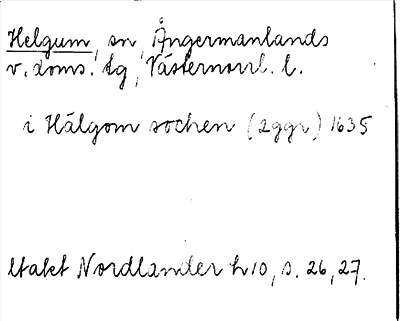 Helgum, sn, Ångermanlands
v. doms. tg, Västernorrl. l.
i Hälgom sochen (2ggr) 1635
Utakt Nordlander h 10, s. 26, 27.